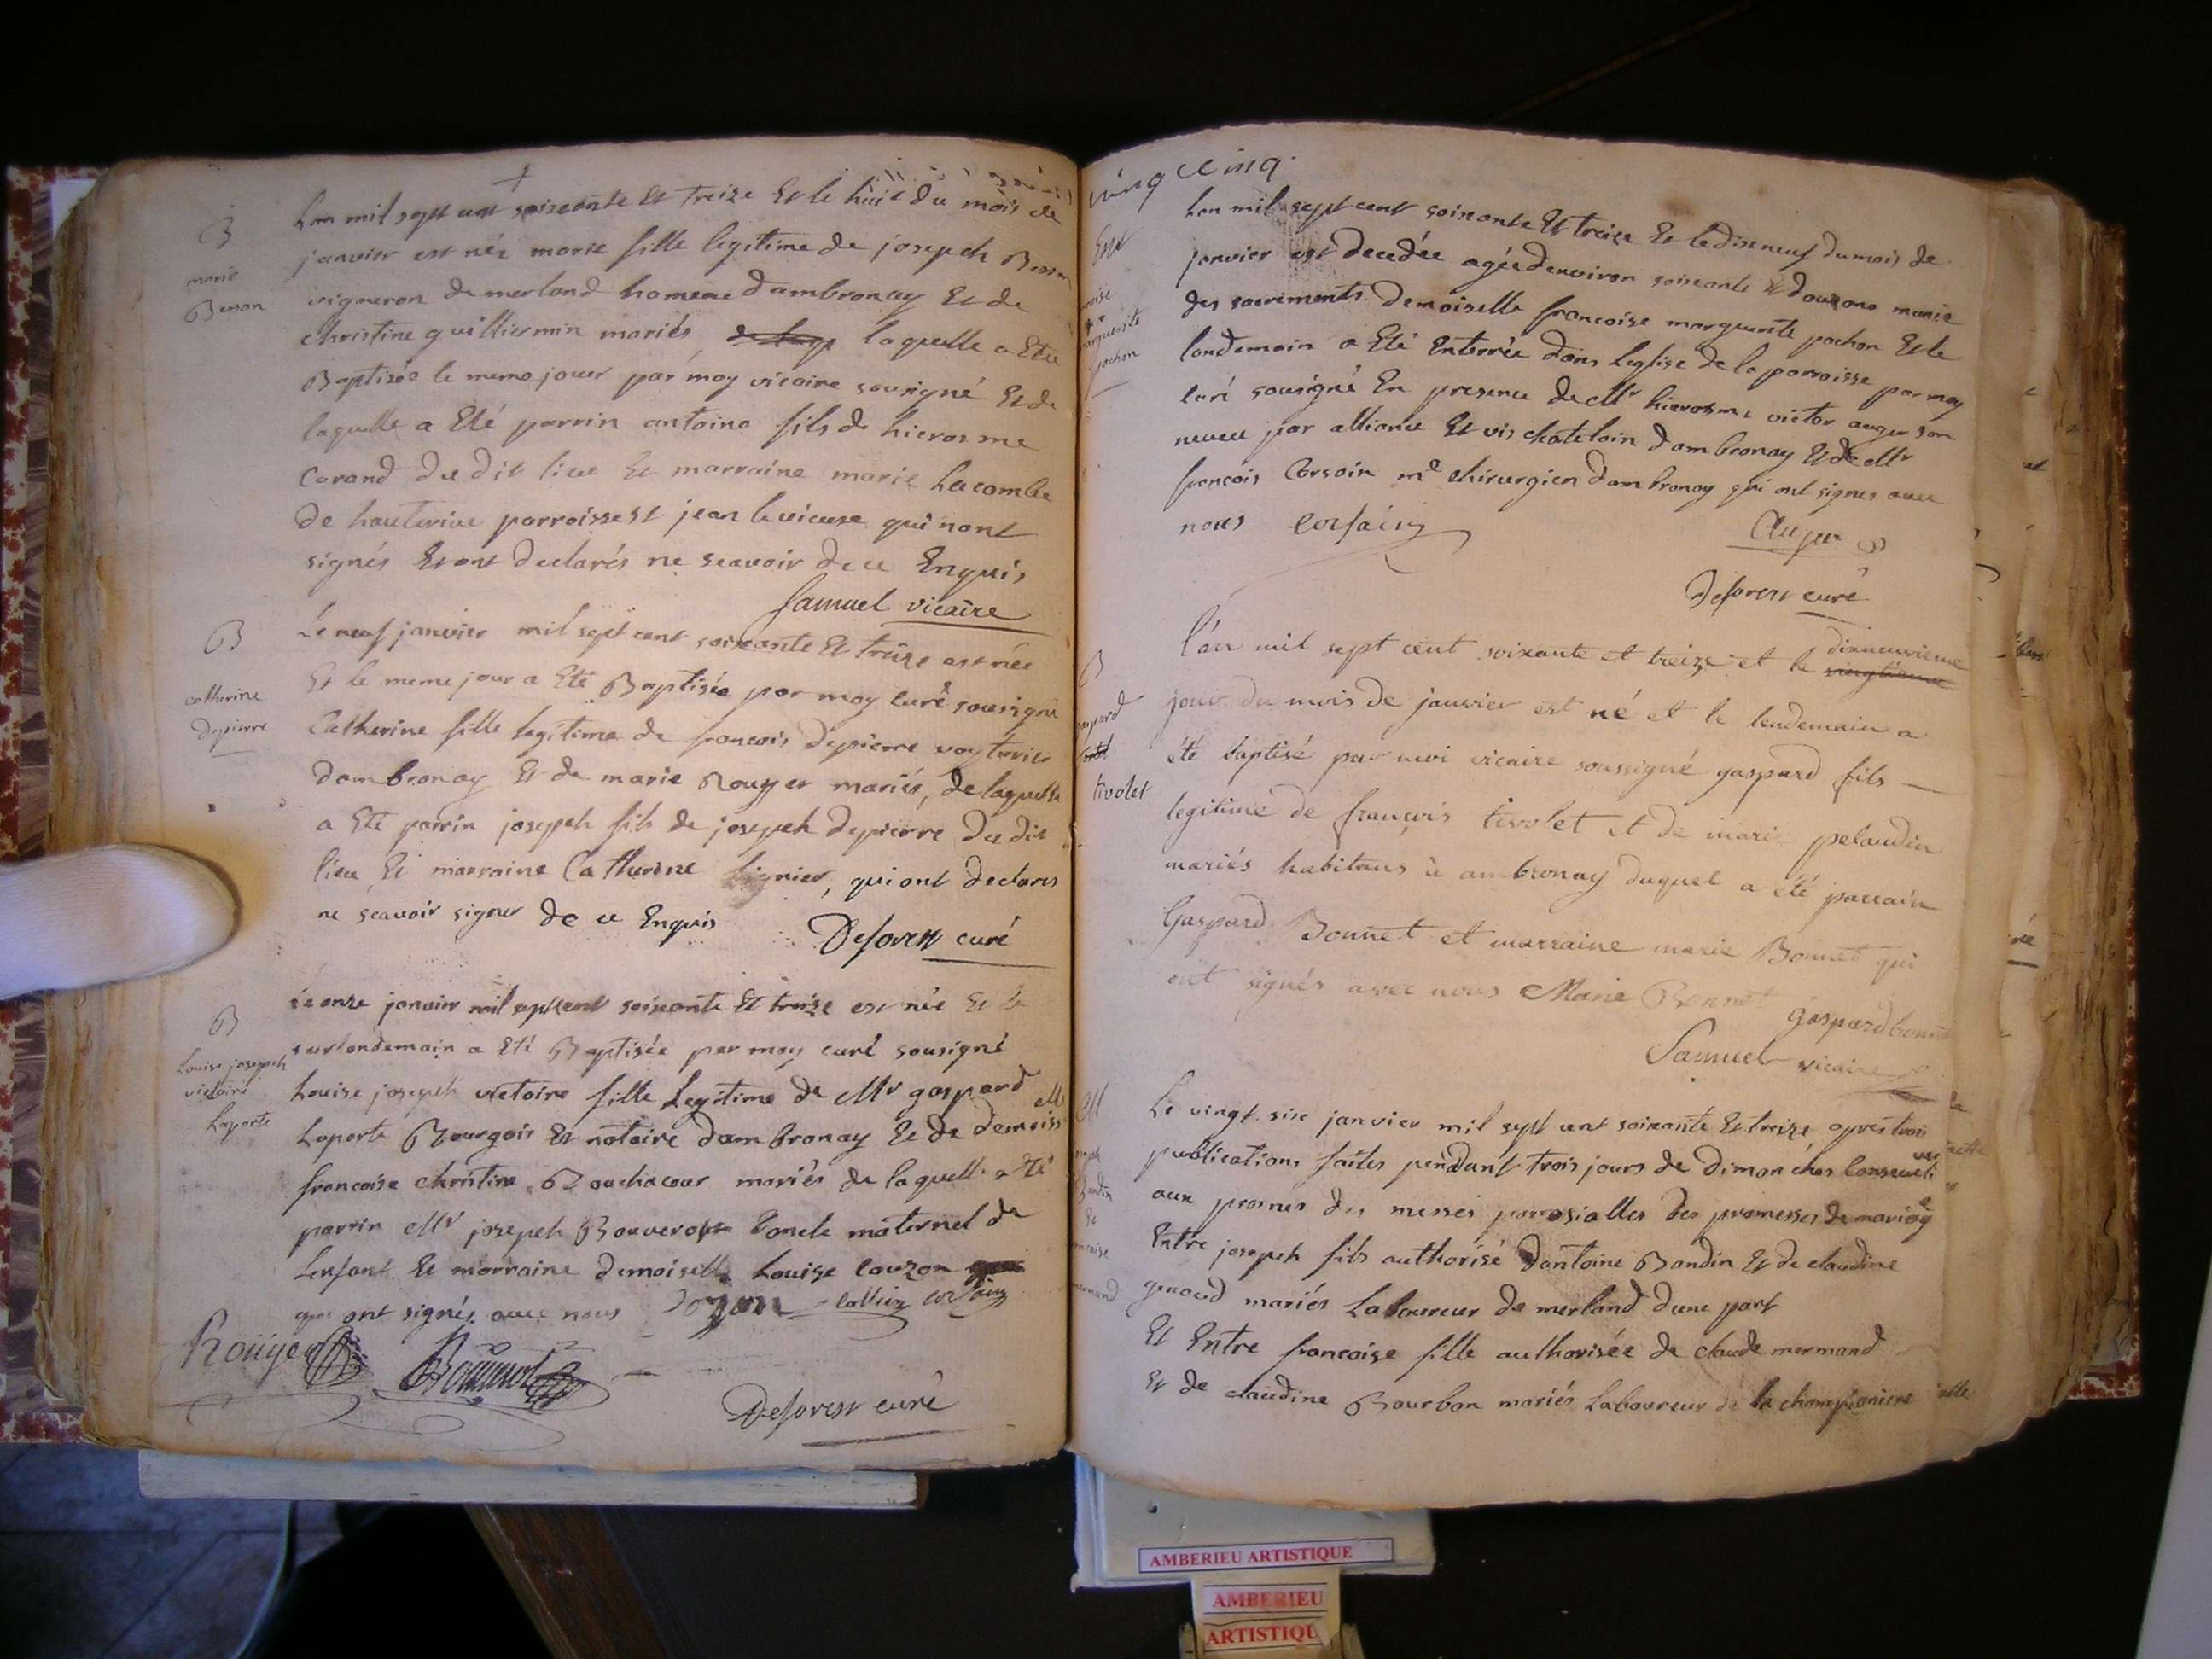 B
marie
Besson
Lan mil sept cent soixante et treize Et le huit du mois de
janvier est née marie fille legitime de joseph Besson
vigneron de merland hameau dambronay Et de
christine guilliermin mariés laquelle a Eté
Baptisée le meme jour par moy vicaire sousigné Et de
laquelle a Eté parrin antoine fils de hierosme
Corand du dit lieu Et marraine marie Lacombe
de hauterive parroisse st jean le vieux qui nont
signés Et ont declarés ne scavoir de ce Enquis
Samuel vicaire
B
catherine
depierre
Le neuf janvier mil sept cent soixante Et treize est née
Et le meme jour a Eté Baptisée par moy curé sousigné
Catherine fille legitime de francois depierre voyturier
dambronay Et de marie Rouyer mariés, de laquelle
a Eté parrin joseph fils de joseph depierre du dit
lieu Et marraine Catherine Lignier, qui ont declarés
ne scavoir signer de ce Enquis
Deforest curé
B
Louise joseph
victoire
Laporte
Le onze janvier mil sept cent soixante Et treize est née Et le
surlandemain a Eté Baptisée par moy curé sousigné
Louise joseph victoire fille Legitime de Mr gaspard
Laporte Bourgois Et notaire dambronay Et de demoiselle
francoise christine mariés de laquelle a Eté
parrin Mr joseph oncle maternel de
Lenfant Et marraine demoiselle Louise
qui ont signés avec nous
Deforest curé
ving cinq
Ent
marguerite
pochon
Lan mil sept cent soixante Et treize Et le dixneuf du mois de
janvier est decedée agée denviron soixante Et douze ans munie
des sacrements demoiselle francoise marguerite pochon Et le
landemain a Eté Enterrée dans Leglise de la parroisse par moy
curé sousigné En presence de Mr hierosme victor auger son
neveu par alliance Et vis chatelain dambronay Et de Mr
francois Corsain me chirurgien dambronay qui ont signés avec
nous Corsain
Auger
Deforest curé
B
gaspard
tivolet
l'an mil sept cent soixante et treize et le dixneuvieme
jour du mois de janvier est né et le lendemain a
été baptisé par moi vicaire soussigné gaspard fils
legitime de françois tivolet et de marie pelaudin
mariés habitans à ambronay duquel a été parrain
Gaspard Bonnet et marraine marie Bonnet qui
ont signés avec nous Marie Bonnet gaspard bonnet
Samuel vicaire
M
Le vingt six janvier mil sept cent soixante Et treize, apres trois
publications faites pendant trois jours de dimanches consecutives
aux prosnes des messes paroissialles des promesses de mariage
Entre joseph fils authorisé dantoine Bandin Et de claudine
genoud mariés Laboureur de merland dune part
Et Entre francoise fille authorisée de claude mermand
Et de claudine Bourbon mariés Laboureur de la championiere
AMBERIEU ARTISTIQUE
AMBERIEU
ARTISTIQU